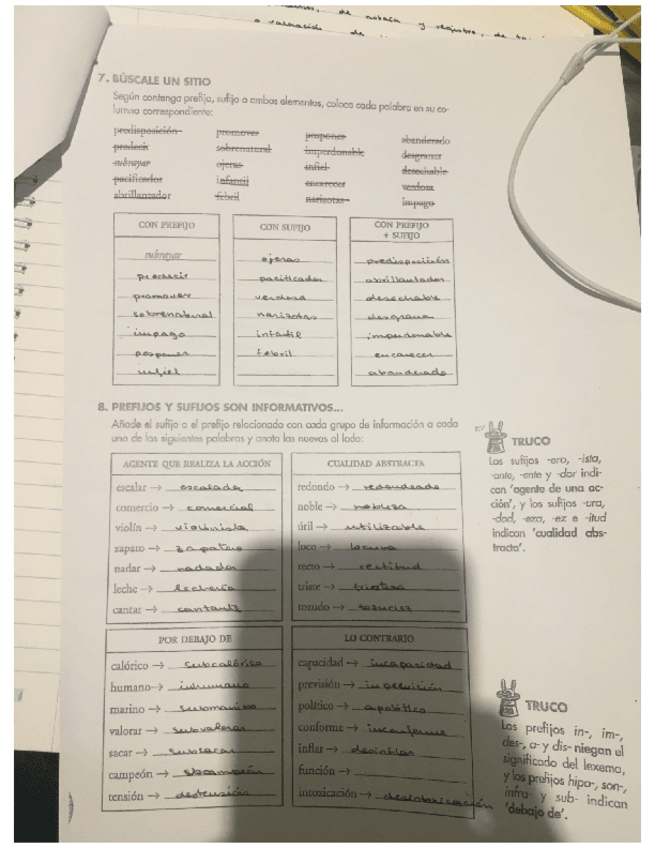 de noticia y registro, de
o valoración de
7. BÚSCALE UN SITIO
Según contenga prefijo, sufijo o ambos elementos, coloca cada palabra en su co-
lumna correspondiente:
predisposición promover posponer abanderado
predecir sobrenatural imperdonable desgranar
subrayar ojeras infiel desechable
pacificador infantil encarecer verdosa
abrillantador febril narizotas impago
CON PREFIJO
subrayar
predecir
promover
sobrenatural
impago
posponer
infiel
CON SUFIJO
ojeras
pacificador
verdosa
narizotas
infantil
febril
CON PREFIJO
+ SUFIJO
predisposición
abrillantador
desechable
desgranar
imperdonable
encarecer
abanderado
8. PREFIJOS Y SUFIJOS SON INFORMATIVOS...
Añade el sufijo o el prefijo relacionado con cada grupo de información a cada
una de las siguientes palabras y anota las nuevas al lado:
AGENTE QUE REALIZA LA ACCIÓN
escalar → escalador
comercio → comercial
violín → violinista
zapato → zapatero
nadar → nadador
leche → lechería
cantar → cantante
CUALIDAD ABSTRACTA
redondo → redondeado
noble → nobleza
útil → utilizable
loco → locura
recto → rectitud
triste → tristeza
tozudo → tozudez
POR DEBAJO DE
calórico → subcalórico
humano → inhumano
marino → submarino
valorar → subvalorar
sacar → subsacar
campeón →
tensión → destensión
LO CONTRARIO
capacidad → incapacidad
previsión → imprevisión
político → apolítico
conforme → inconforme
inflar → desinflar
función →
intoxicación → desintoxicación
TRUCO
Los sufijos -ero, -ista,
-ante, -ente y -dor indi-
can 'agente de una ac-
ción', y los sufijos -ura,
-dad, -eza, -ez e -itud
indican 'cualidad abs-
tracta'.
TRUCO
Los prefijos in-, im-,
des-, a- y dis- niegan el
significado del lexema,
y los prefijos hipo-, son-,
infra- y sub- indican
'debajo de'.